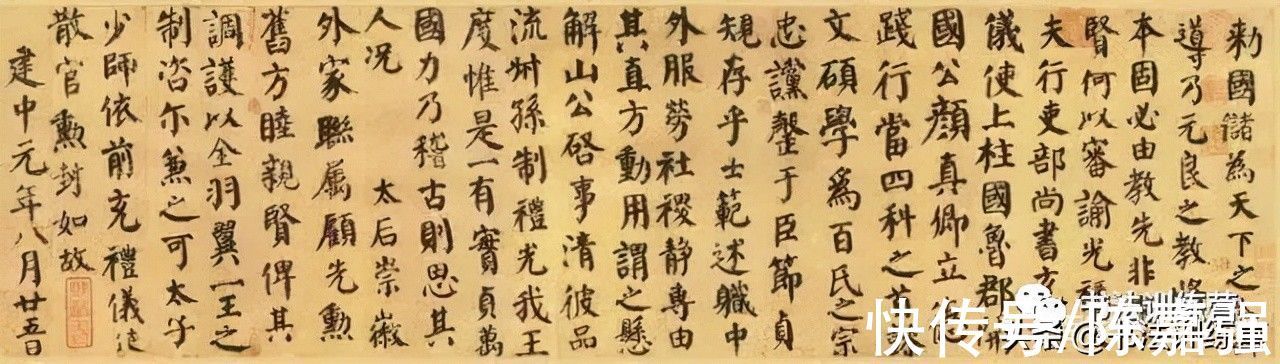 勅國儲為天下之
導乃元良之教將
本固必由教先非
賢何以審諭光祿
夫行吏部尚書充
儀使上柱國魯郡
國公顏真卿立
踐行當四科之
文碩學爲百民之宗
忠讜罄于臣節貞
規存乎士範述職中
外服勞社稷静専由
其直方動用謂之懸
解山公啓事清彼品
流叔孫制禮光我王
度惟是一有實貞萬
國力乃稽古則思其
人况 太后崇徽
外家聯屬顧先勳
舊方睦親賢俾其
調護以全羽翼一王之
制咨尔兼之可太子
少師依前充禮儀使
散官勳封如故
建中元年八月廿五日
快传号/陈嘉强